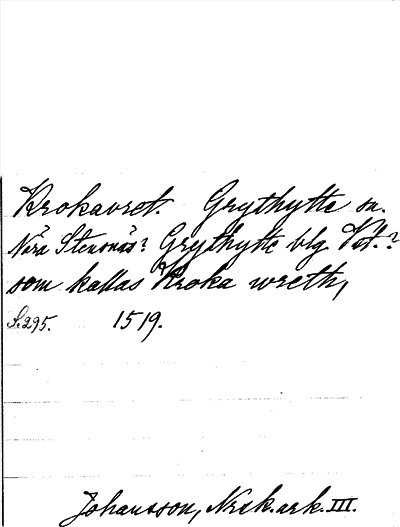 Krokavret. Grythytte sn.
Nära Stensnäs? Grythytte blg. Vst.?
som kallas Kroka wreth,
S.295. 1519.
Johansson, Nrsk.ark. III.